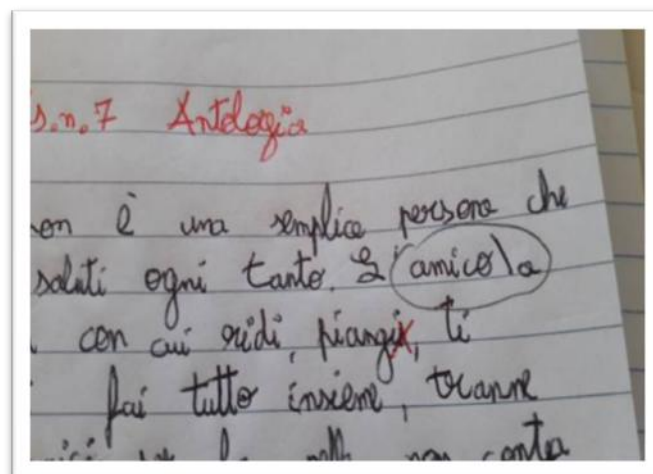 s.n.7 Antologia
on è una semplice persona che
saluti ogni tanto. L'amico\a
con cui ridi, piangi, ti
fai tutto insieme, tranne
non conta